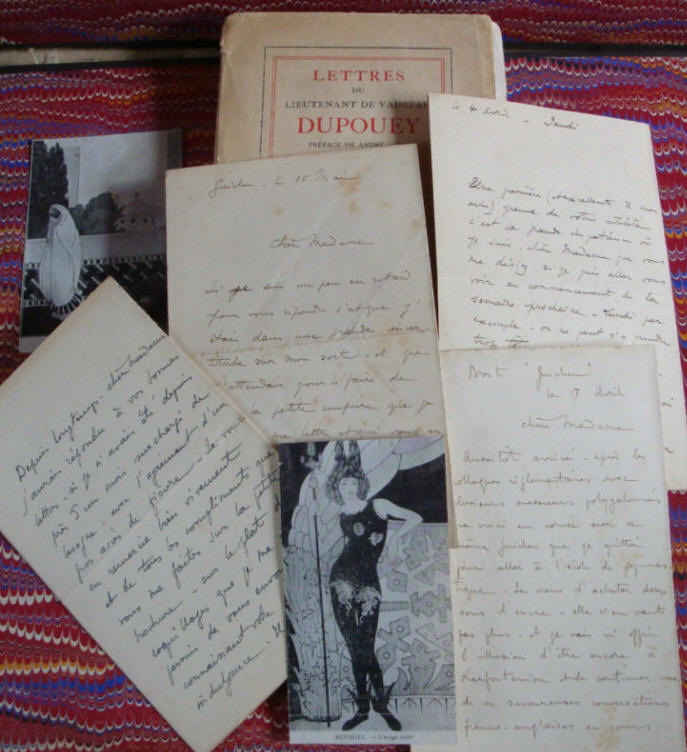 LETTRES
DU
LIEUTENANT DE VAISSEAU
DUPOUEY
PRÉFACE DE ANDRÉ
Avril - Jeudi
Une première (
avis) preuve de votre
c'est la grande impatience où
je suis, chère Madame que vous
me disiez si je puis aller vous
voir au commencement de la
semaine prochaine - Lundi par
exemple - on ne peut s'y prendre
trop tôt
Guichen - le 25 Mai
chère Madame
Si je suis un peu en retard
pour vous répondre c'est que j'
étais dans une grande incer
titude sur mon sort - et que
j'attendais pour le faire de
la petite coupure que je
lettre et qui vous
Depuis longtemps, chère Madame
j'aurais répondu à vos bonnes
lettres - si je n'avais été depuis
près d'un mois surchargé de
besogne - avec l'agrément d'un
gros accès de fièvre. Je vous
remercie bien vivement
et de tous les compliments que
vous me faites sur la petite
brochure - sur le plat
coquillages que je me
permis de vous envoyer
connaissant votre
indulgence. Il
Brest "Guichen"
le 17 Avril
chère Madame
Aussitôt arrivé - après les
colloques réglementaires avec
plusieurs messieurs
me voici en corvée sur ce
même Guichen que je quittai
pour aller à l'école de gymnas
tique. Je viens d'acheter deux
sous d'encre - elle n'en vaut
pas plus - et je vais m'offrir
l'illusion d'être encore à
et de continuer une
de ces savoureuses conversations
franco-anglaises au cours
DUPOUEY. — L'ange noir